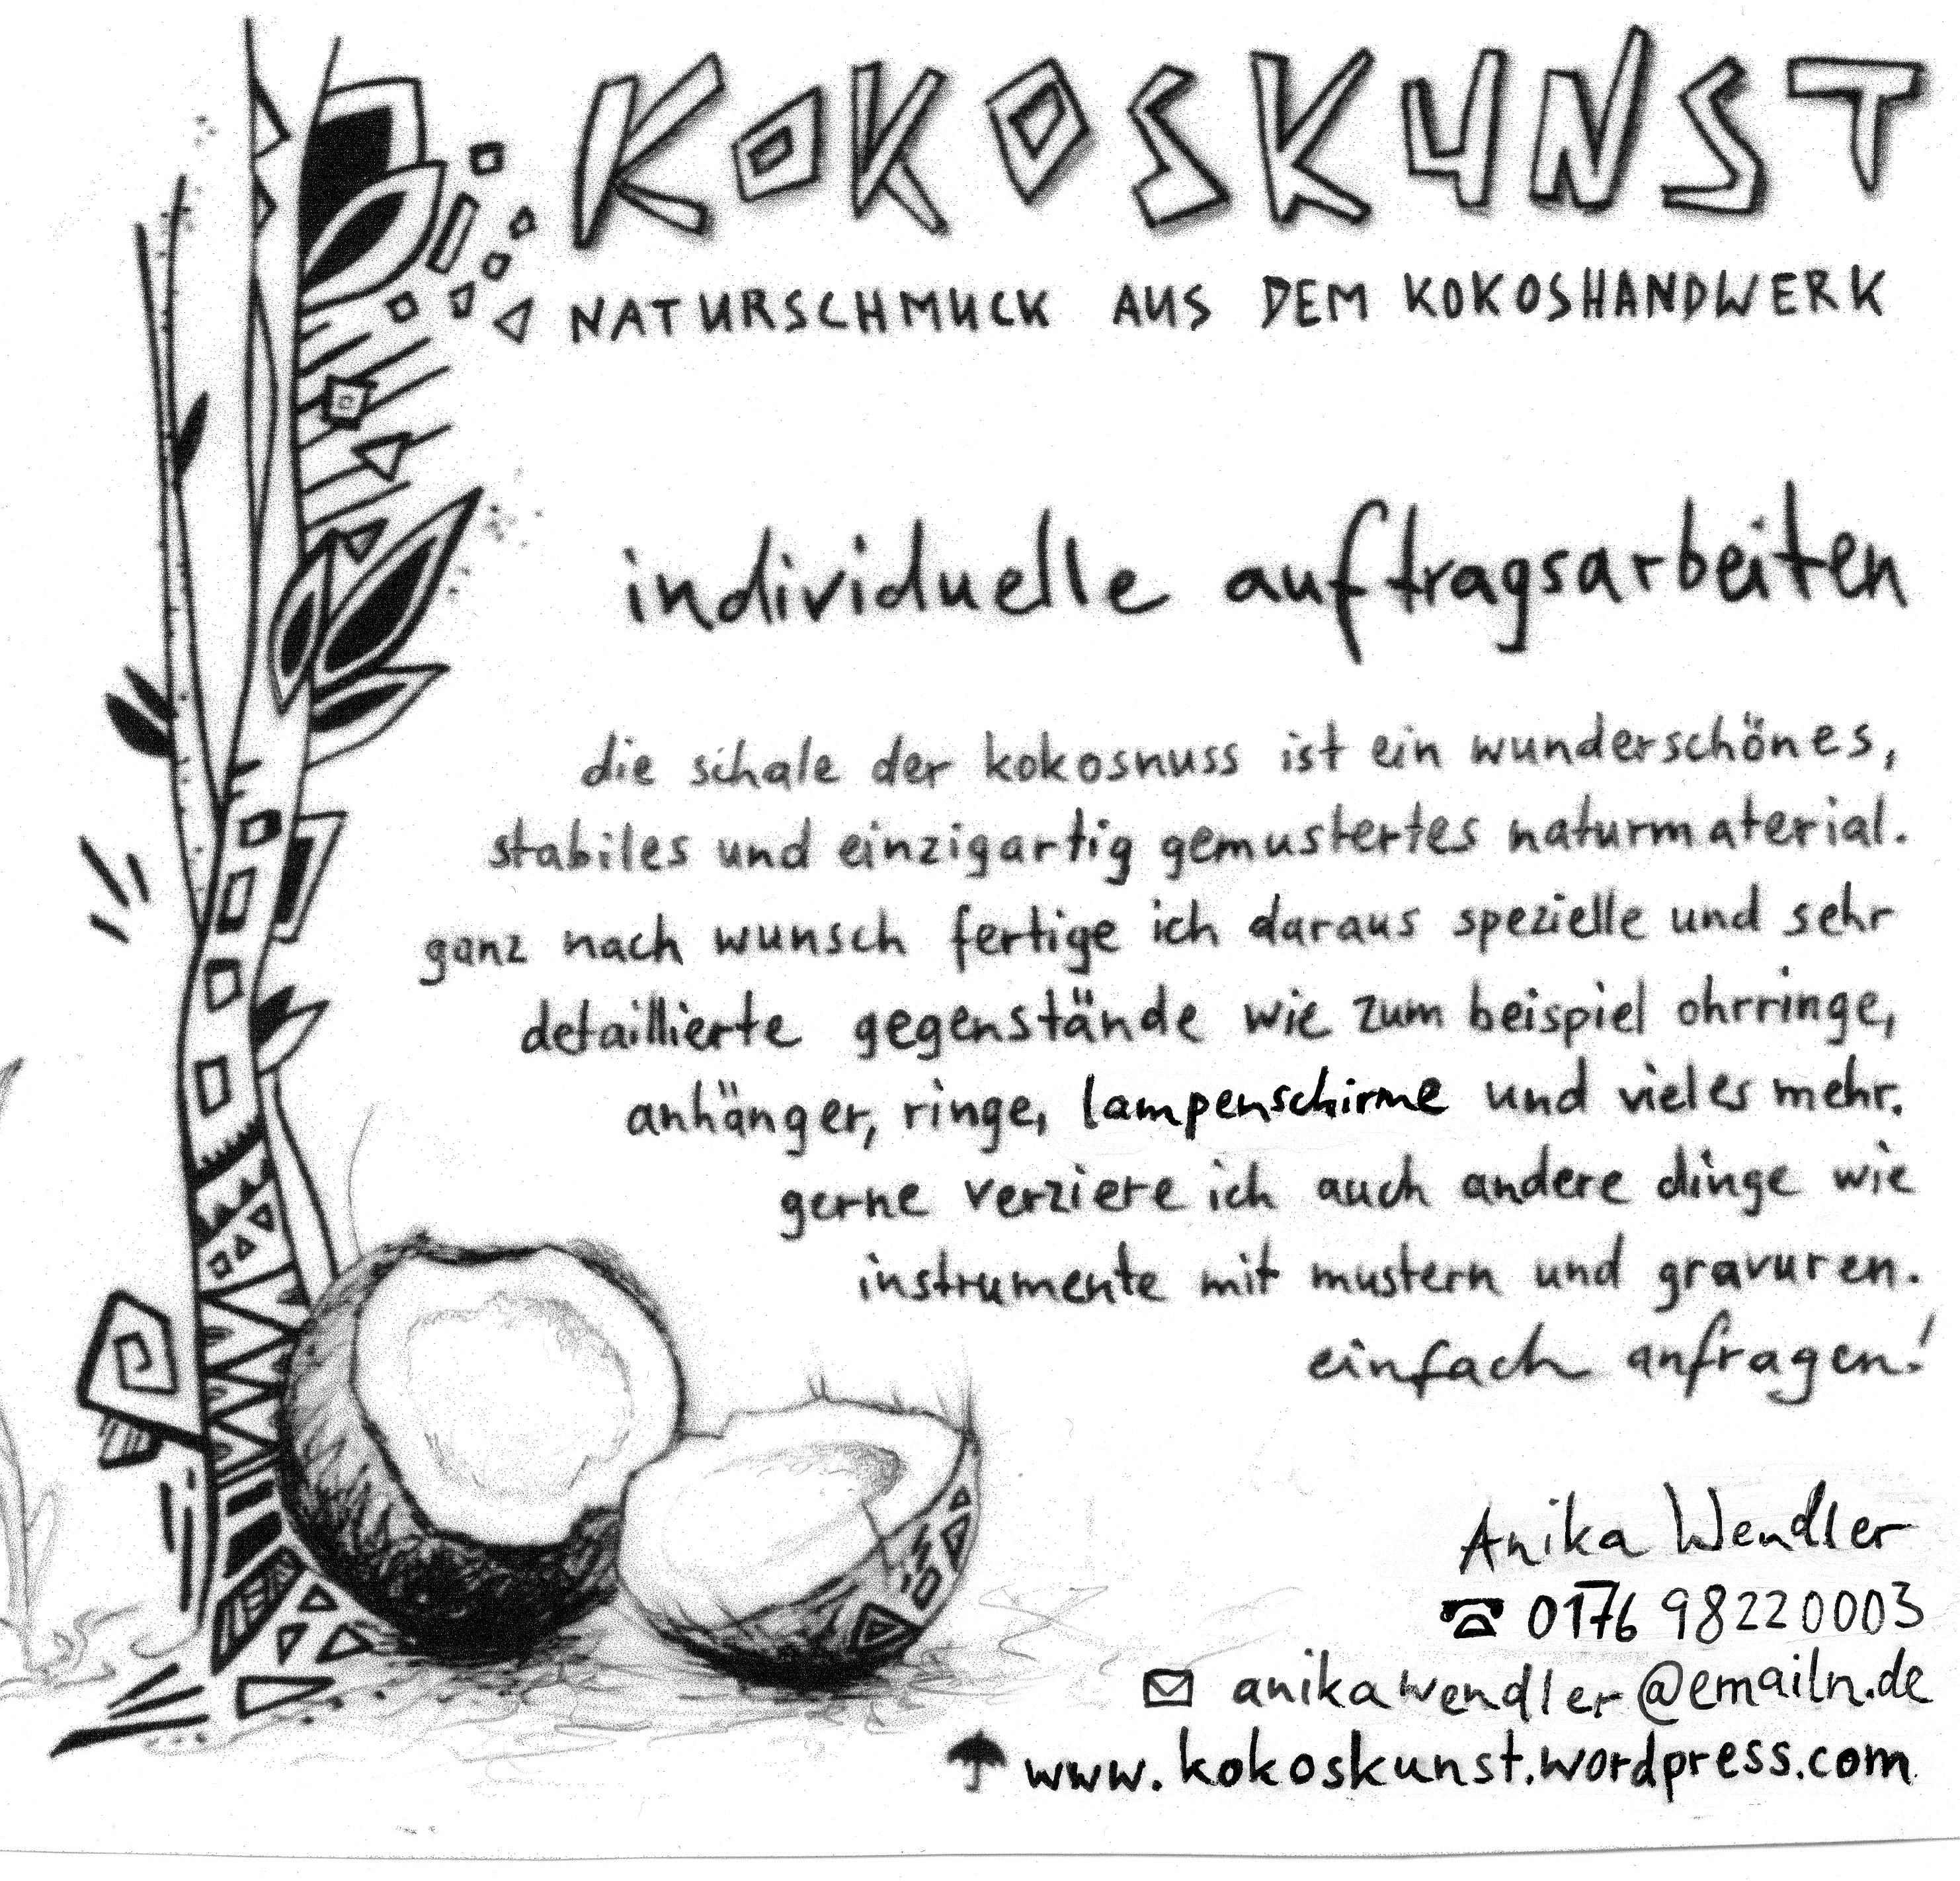 KOKOSKUNST
NATURSCHMUCK AUS DEM KOKOSHANDWERK
individuelle auftragsarbeiten
die schale der kokosnuss ist ein wunderschönes,
stabiles und einzigartig gemustertes naturmaterial.
ganz nach wunsch fertige ich daraus spezielle und sehr
detaillierte gegenstände wie zum beispiel ohrringe,
anhänger, ringe, lampenschirme und vieles mehr.
gerne verziere ich auch andere dinge wie
instrumente mit mustern und gravuren.
einfach anfragen!
Anika Wendler
☎ 0176 98220003
✉ anikawendler@emailn.de
☂ www.kokoskunst.wordpress.com